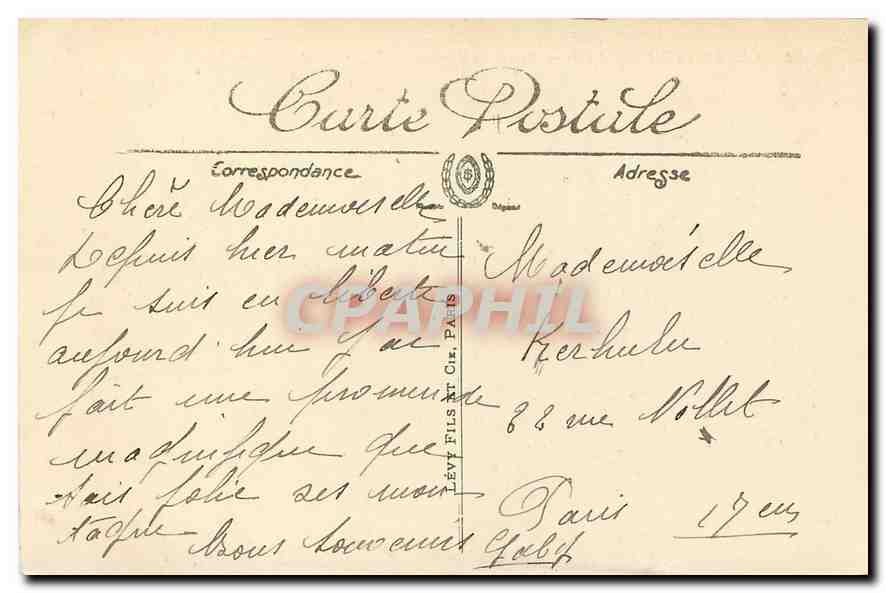 Carte Postale
Correspondance
Adresse
Chère Mademoiselle
Depuis hier matin
je suis en liberte
aujourd'hui j'ai
fait une promenade
magnifique que
tais jolie ses mon
tagne
Bons souvenirs
Gaby
LÉVY FILS ET CIE, PARIS
Mademoiselle
Kerhulu
82 rue Nollet
Paris 17 em
CPAPHIL